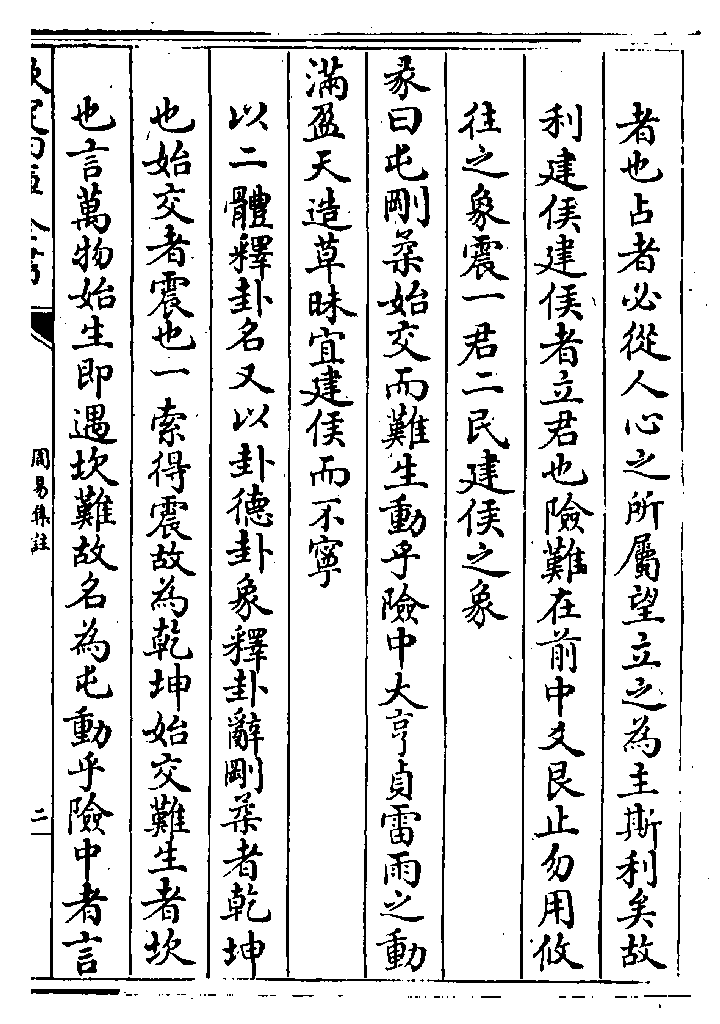 者也占者必從人心之所屬望立之為主斯利矣故
利建侯建侯者立君也險難在前中爻艮止勿用攸
往之象震一君二民建侯之象
彖曰屯剛柔始交而難生動乎險中大亨貞雷雨之動
滿盈天造草昧宜建侯而不寧
以二體釋卦名又以卦德卦象釋卦辭剛柔者乾坤
也始交者震也一索得震故為乾坤始交難生者坎
也言萬物始生即遇坎難故名為屯動乎險中者言
欽定四庫全書
周易集註
二